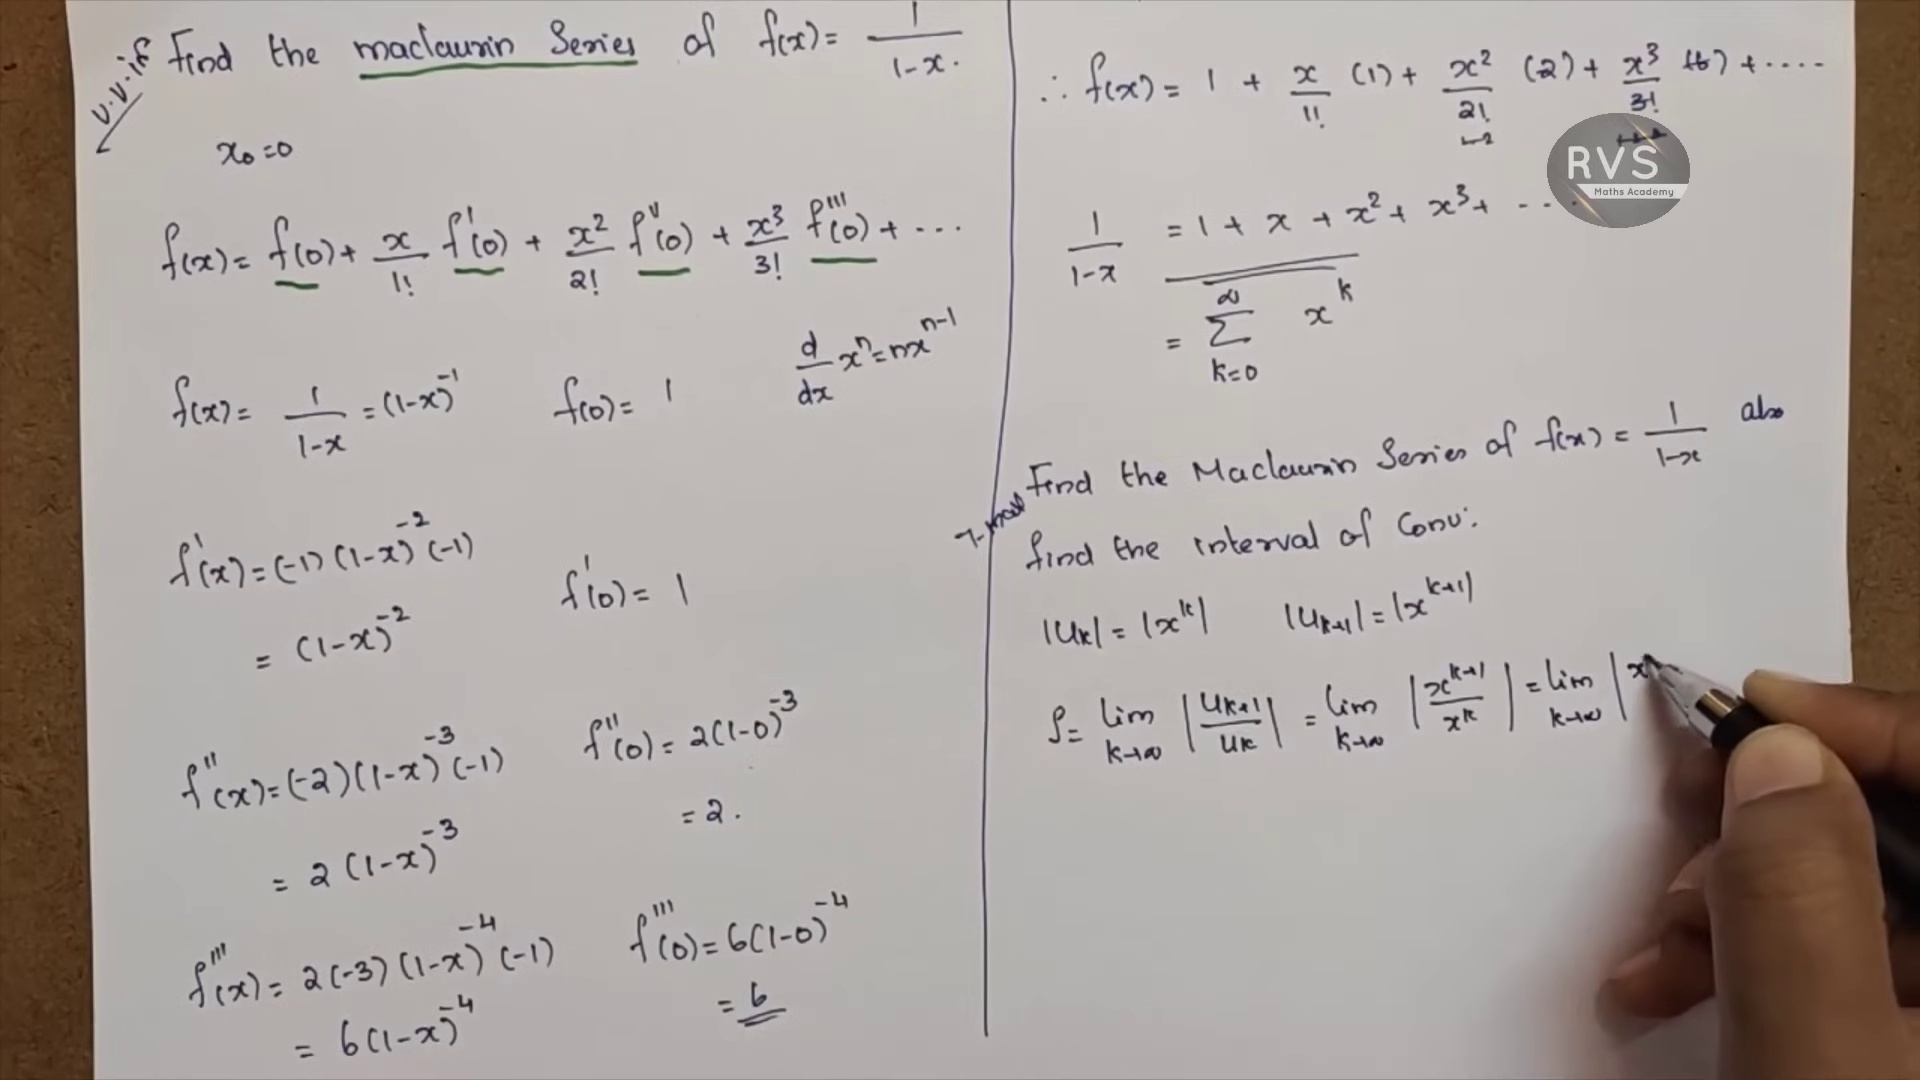 V.V.if Find the maclaurin Series of f(x) = 1/(1-x).
x₀ = 0
f(x) = f(0) + x/1! f'(0) + x²/2! f''(0) + x³/3! f'''(0) + ...
f(x) = 1/(1-x) = (1-x)⁻¹ f(0) = 1 d/dx xⁿ = nxⁿ⁻¹
f'(x) = (-1)(1-x)⁻²(-1)
= (1-x)⁻² f'(0) = 1
f''(x) = (-2)(1-x)⁻³(-1) f''(0) = 2(1-0)⁻³
= 2(1-x)⁻³ = 2.
f'''(x) = 2(-3)(1-x)⁻⁴(-1) f'''(0) = 6(1-0)⁻⁴
= 6(1-x)⁻⁴ = 6
∴ f(x) = 1 + x/1! (1) + x²/2! (2) + x³/3! (6) + ....
RVS
Maths Academy
1/(1-x) = 1 + x + x² + x³ + ...
= ∞ Σ k=0 xᵏ
Find the Maclaurin Series of f(x) = 1/(1-x) also
find the interval of Conv:
|uₖ| = |xᵏ| |uₖ₊₁| = |xᵏ⁺¹|
ρ = lim k→∞ |uₖ₊₁/uₖ| = lim k→∞ |xᵏ⁺¹/xᵏ| = lim k→∞ |x